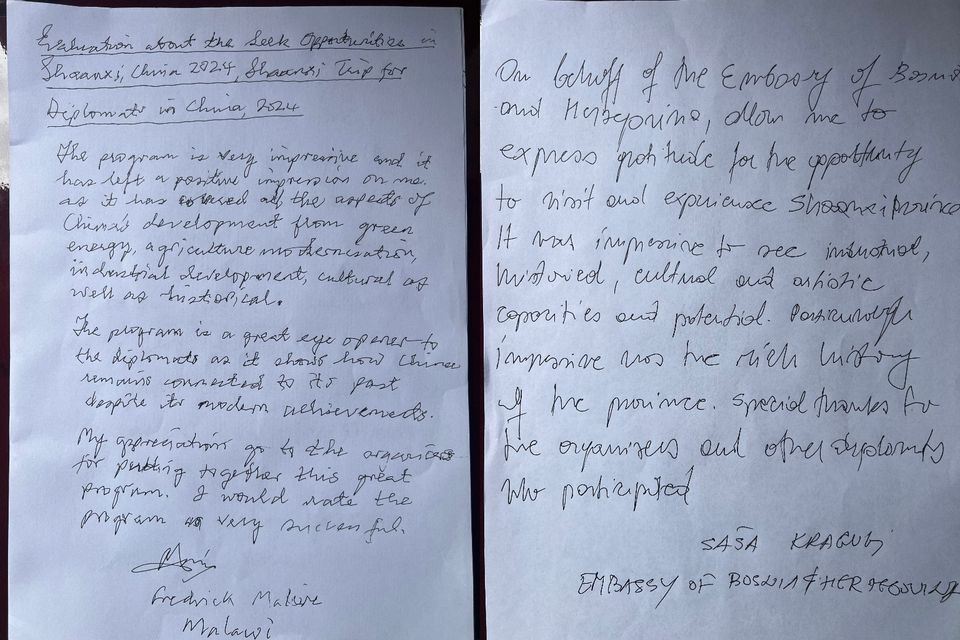 Evaluation about the Seek Opportunities in
Shaanxi, China 2024, Shaanxi Trip for
Diplomats in China, 2024
The program is very impressive and it
has left a positive impression on me.
as it has covered all the aspects of
China's development from green
energy, agriculture modernisation,
industrial development, cultural as
well as historical.
The program is a great eye opener to
the diplomats as it shows how China
remains connected to its past
despite its modern achievements.
My appreciations go to the organisers
for putting together this great
program. I would rate the
program as very successful.
Fredrick
Malawi
On behalf of the Embassy of Bosnia
and Herzegovina, allow me to
express gratitude for the opportunity
to visit and experience Shaanxi province
It was impressive to see industrial,
historical, cultural and artistic
capacities and potential. Particularly
impressive was the rich history
of the province. Special thanks to
the organizers and other diplomats
who participated
SAŠA
EMBASSY OF BOSNIA & HERZEGOVINA